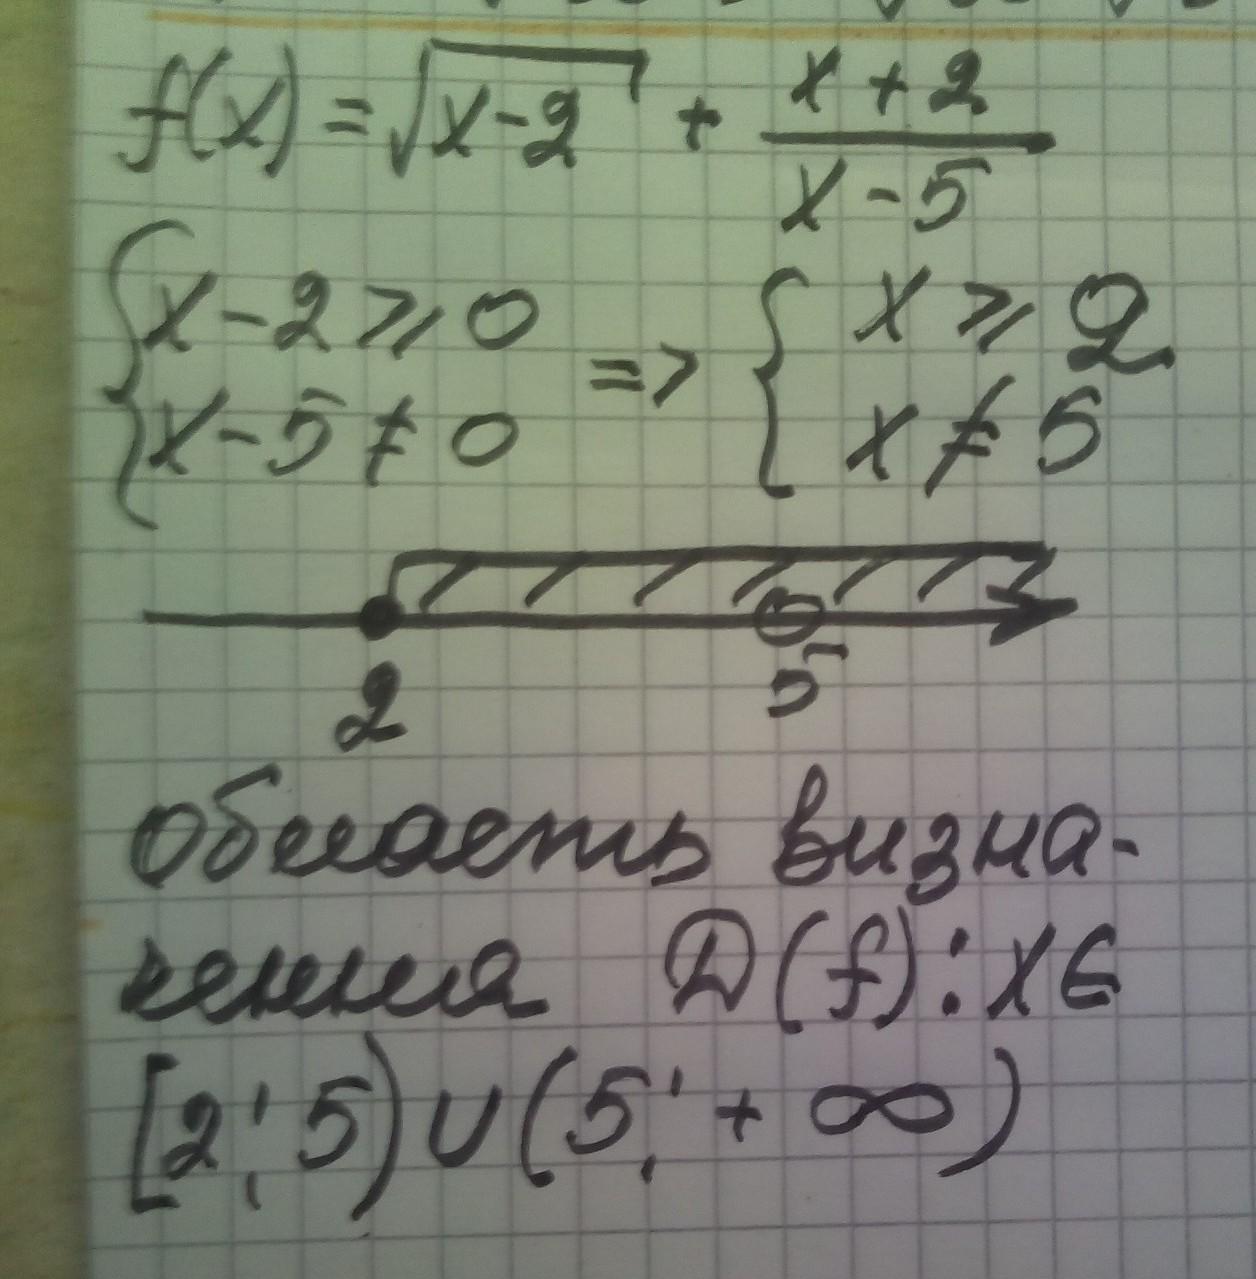 f(x) = √(x-2) + (x+2)/(x-5)
{ x-2 ⩾ 0 => { x ⩾ 2
{ x-5 ≠ 0 { x ≠ 5
2 5
область визна-
чення D(f): x ∈
[2; 5) ∪ (5; +∞)